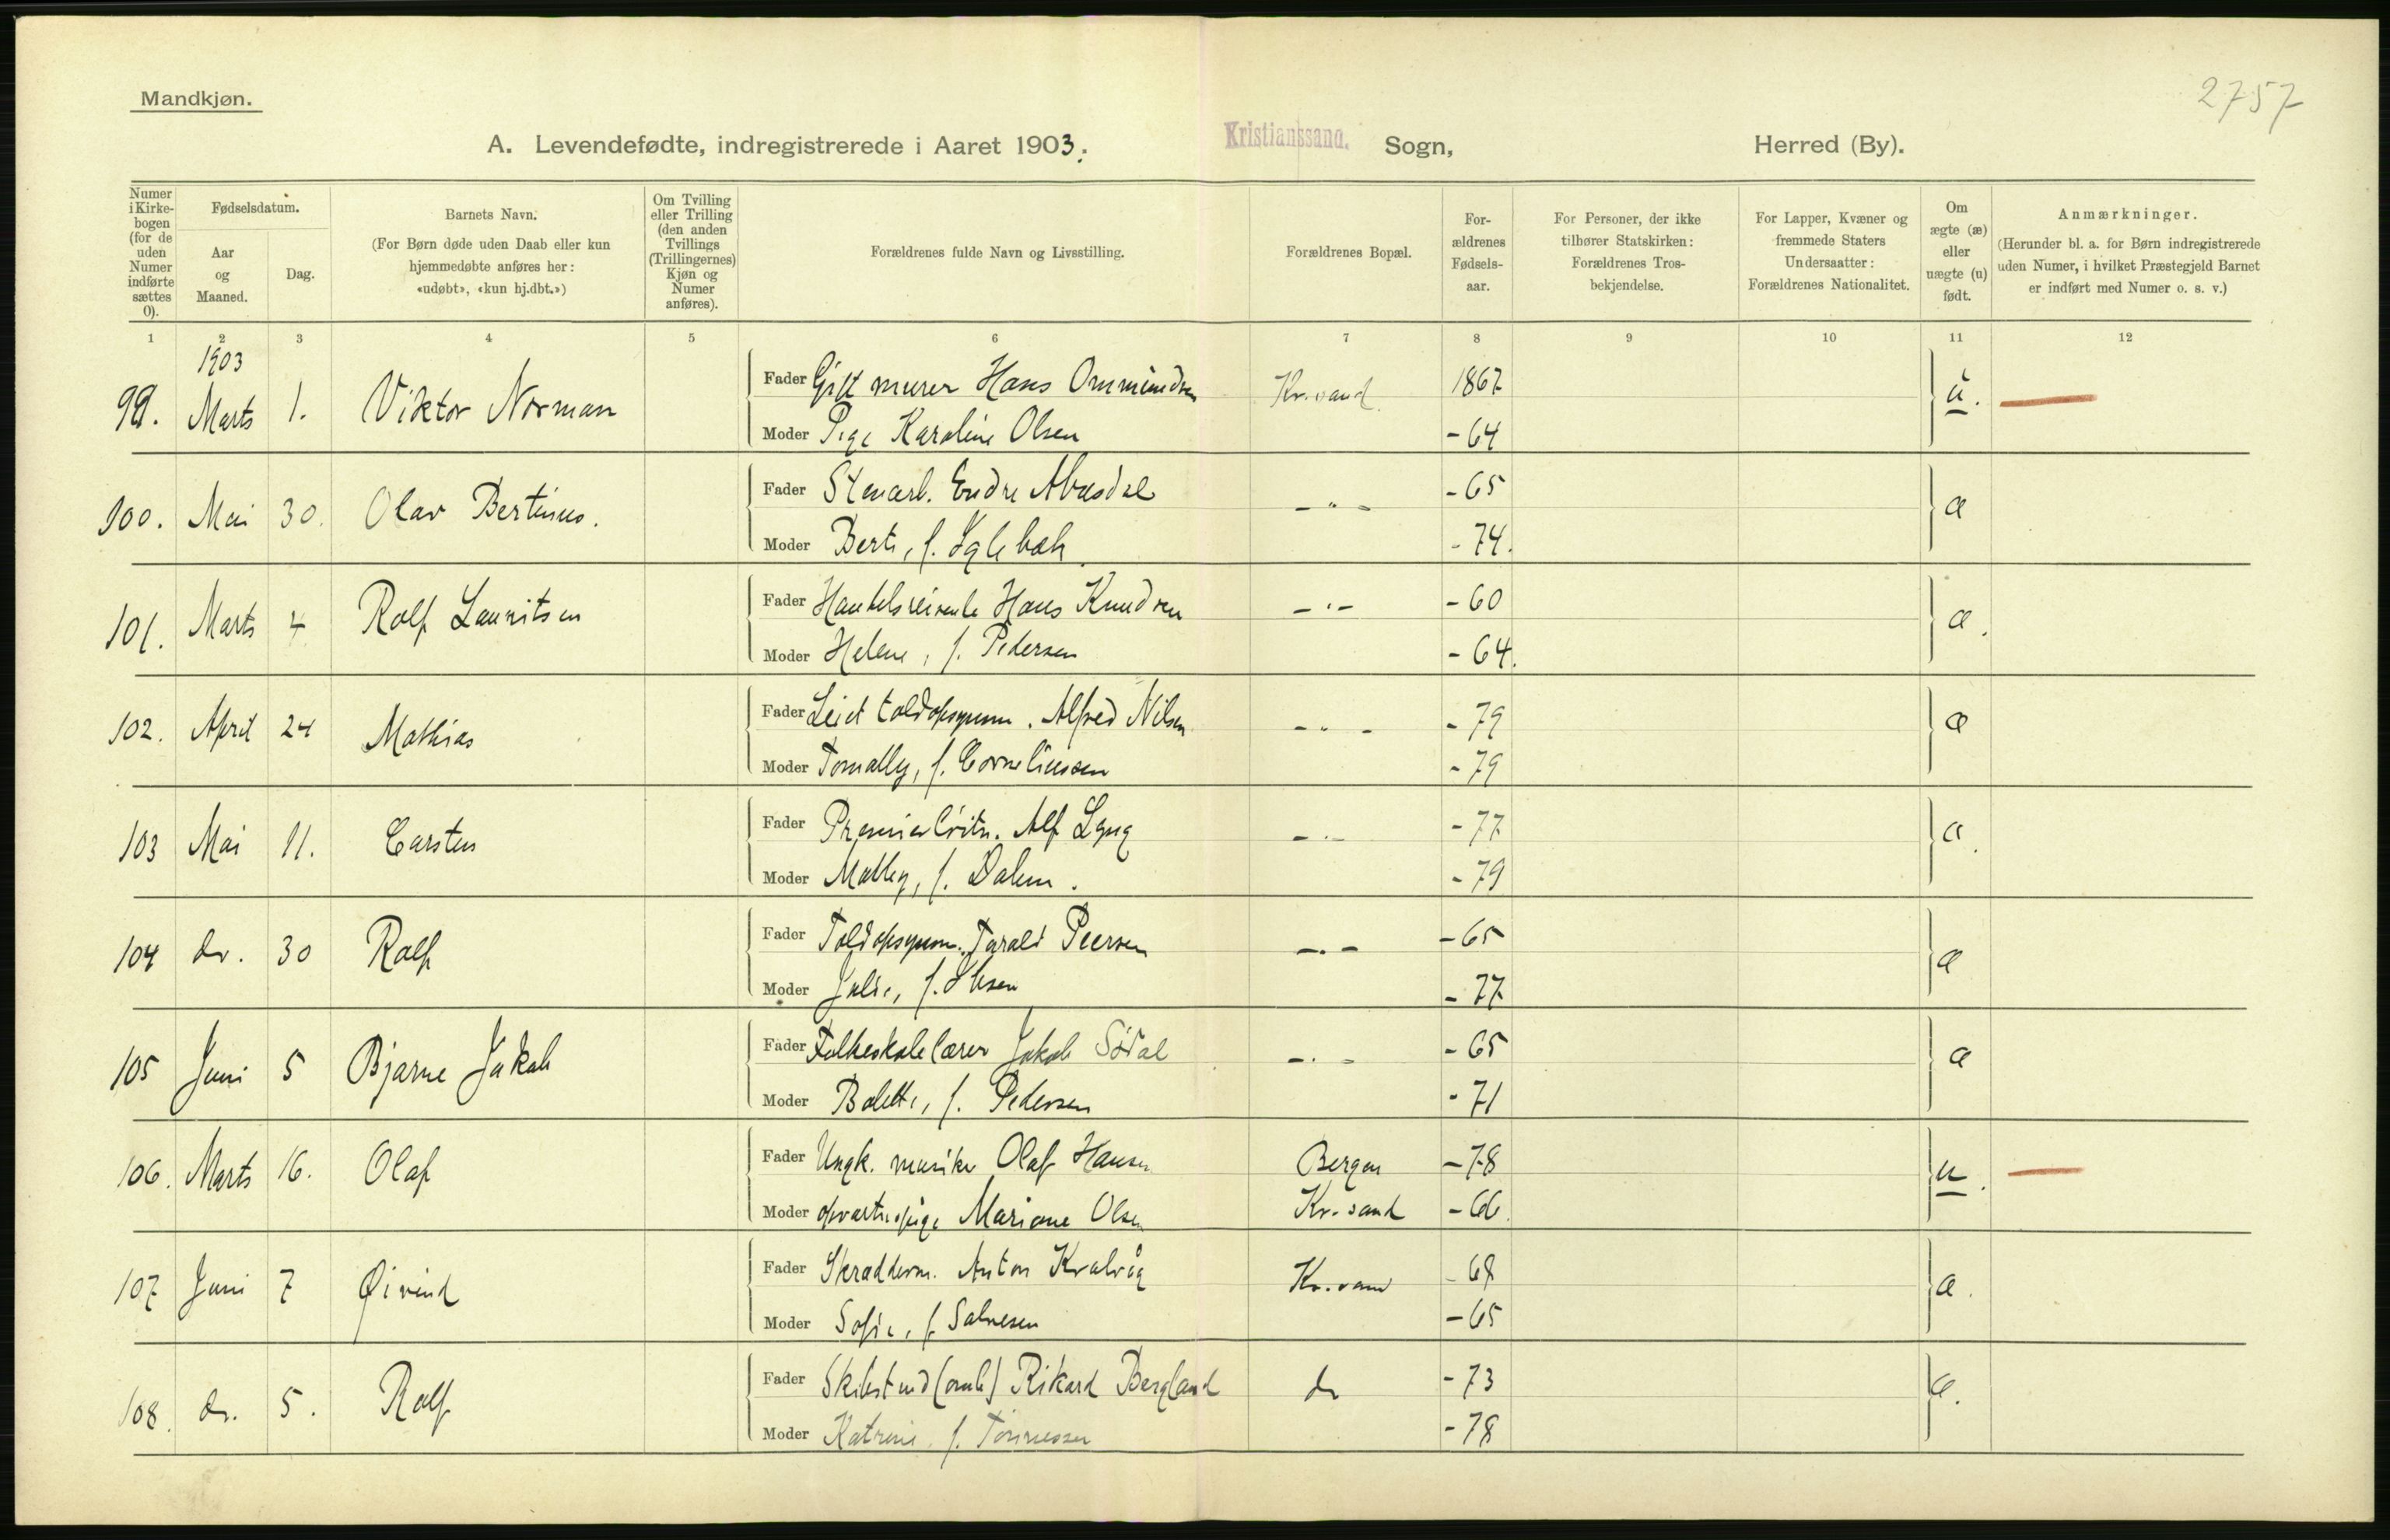 2757
Mandkjøn.
A. Levendefødte, indregistrerede i Aaret 1903. Kristianssand. Sogn, Herred (By).
Numer i Kirke-bogen (for de uden Numer indførte sættes 0).
Fødselsdatum.
Aar og Maaned.
Dag.
Barnets Navn.
(For Børn døde uden Daab eller kun hjemmedøbte anføres her: «udøbt», «kun hj.dbt.»)
Om Tvilling eller Trilling (den anden Tvillings (Trillingernes) Kjøn og Numer anføres).
Forældrenes fulde Navn og Livsstilling.
Forældrenes Bopæl.
For-ældrenes Fødsels-aar.
For Personer, der ikke tilhører Statskirken: Forældrenes Tros-bekjendelse.
For Lapper, Kvæner og fremmede Staters Undersaatter: Forældrenes Nationalitet.
Om ægte (æ) eller uægte (u) født.
Anmærkninger.
(Herunder bl. a. for Børn indregistrerede uden Numer, i hvilket Præstegjeld Barnet er indført med Numer o. s. v.)
1 2 3 4 5 6 7 8 9 10 11 12
1903
99. Marts 1. Viktor Norman Fader Gift murer Hans Ommundsen Kr.sand 1867 u.
Moder Pige Karoline Olsen - 64
100. Mai 30. Olav Bertinus. Fader Stenarb. Endre -"- - 65 æ
Moder Berte, f. - 74.
101. Marts 4 Rolf Lauritsen Fader Handelsreisende Hans Knudsen -"- - 60 æ.
Moder Helene, f. Pedersen - 64.
102. April 24 Mathias Fader Leiet toldopsynsm. Alfred Nilsen -"- - 79 æ
Moder Tomally, f. Corneliussen - 79
103 Mai 11. Carsten Fader Premierløitn. Alf Lyng -"- - 77 æ.
Moder f. - 79
104 do. 30 Rolf Fader Toldopsynsm. Tarald Peersen -"- - 65 æ
Moder Julie, f. - 77
105 Juni 5 Bjarne Jakob Fader Folkeskolelærer Jakob Sødal -"- - 65 æ
Moder Bolette, f. Pedersen - 71
106. Marts 16. Olaf Fader Ungk. musiker Olaf Hansen Bergen - 78 u.
Moder opvartn.pige Mariane Olsen Kr.sand - 66.
107 Juni 7 Øivind Fader Skræderm. Anton Kvalvåg Kr.sand - 68 æ.
Moder Sofie, f. Salvesen - 65
108. do. 5. Rolf Fader Rikard Bergland do - 73 æ.
Moder Katrine f. Tønnessen - 78